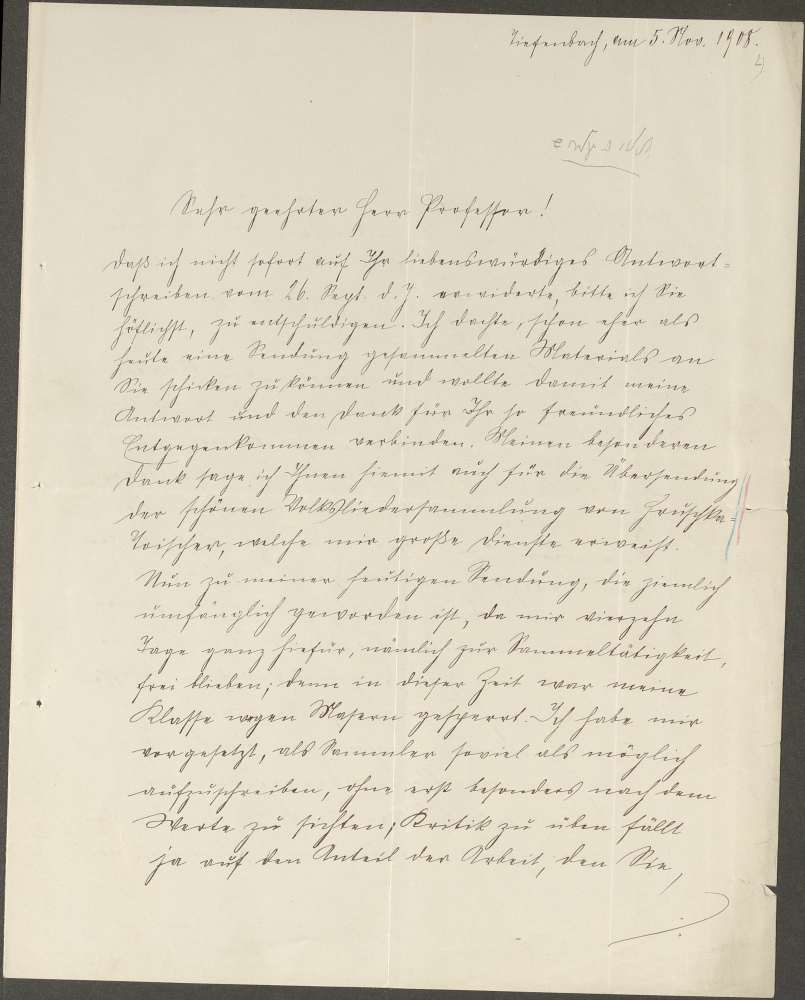 Tiefenbach, am 5. Nov. 1908.
Sehr geehrter Herr Professor!
Daß ich nicht sofort auf Ihr liebenswürdiges Antwort=
schreiben vom 26. Sept. d. J. erwiderte, bitte ich Sie
höflichst, zu entschuldigen. Ich dachte, schon eher als
heute eine Sendung gesammelten Materials an
Sie schicken zu können und wollte damit meine
Antwort und den Dank für Ihr so freundliches
Entgegenkommen verbinden. Meinen besonderen
Dank sage ich Ihnen hiemit auch für die Übersendung
der schönen Volksliedersammlung von Hruschka=
Toischer, welche mir große Dienste erweist.
Nun zu meiner heutigen Sendung, die ziemlich
umfänglich geworden ist, da mir vierzehn
Tage ganz hiefür, nämlich zur Sammeltätigkeit,
frei blieben; denn in dieser Zeit war meine
Klasse wegen Masern gesperrt. Ich habe mir
vorgesetzt, als Sammler soviel als möglich
aufzuschreiben, ohne erst besonders nach dem
Werte zu sichten; Kritik zu üben fällt
ja auf den Anteil der Arbeit, den Sie,